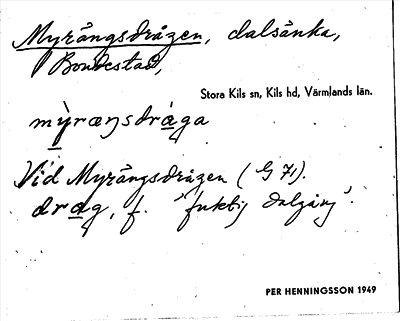 Myrängsdrågen, dalsänka,
Bondestad,
Stora Kils sn, Kils hd, Värmlands län.
mỳræŋsdràga
Vid Myrängsdrågen (G 71).
drag, f. "fuktig dalgång".
PER HENNINGSSON 1949